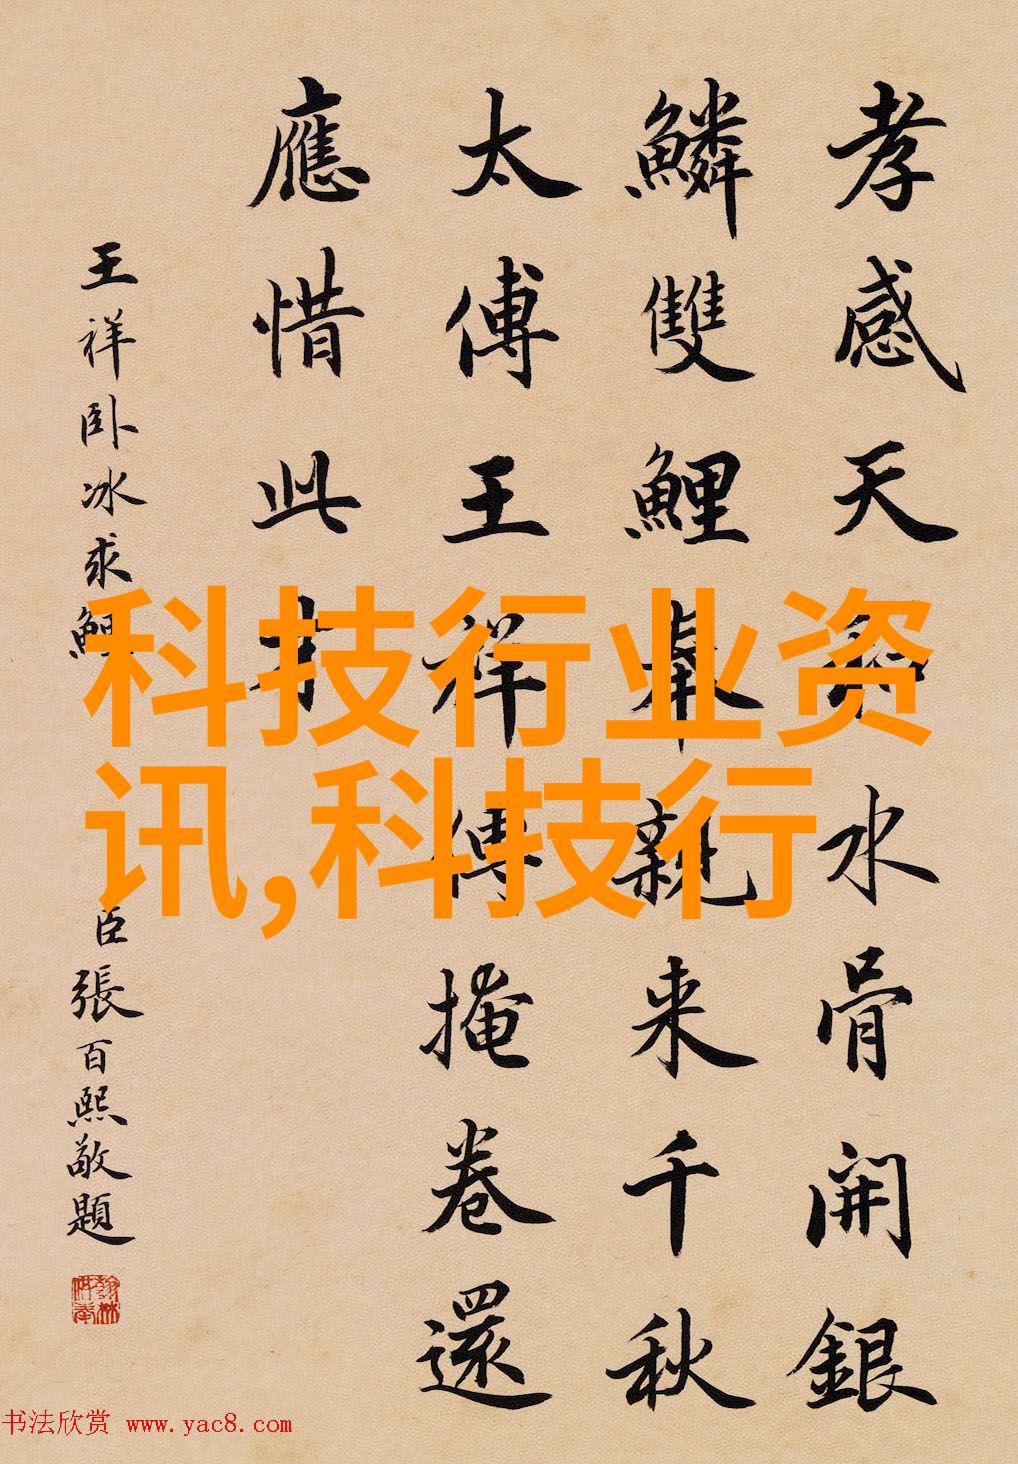 孝感天水骨開銀
鱗雙鯉奉親来千秋
太傅王祥傳掩卷還
應惜此才
王祥卧冰求鯉
臣張百熙敬題
科技行业资
讯,科技行
书法欣赏 www.yac8.com